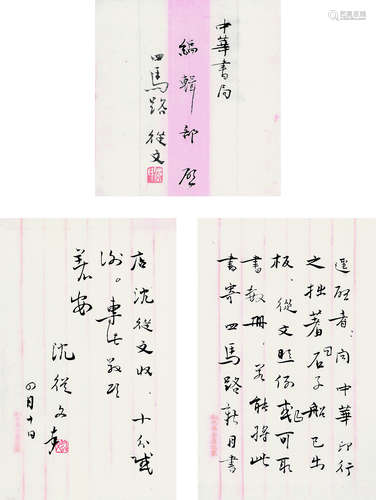 中華書局
編輯部啟
四馬路 從文
逕啟者:聞中華印行
之拙著石子船已出
板,從文照例或可取
書數冊,若能將此
書寄四馬路新月書
店沈從文收,十分感
謝。專此敬頌
著安
沈從文
四月十日